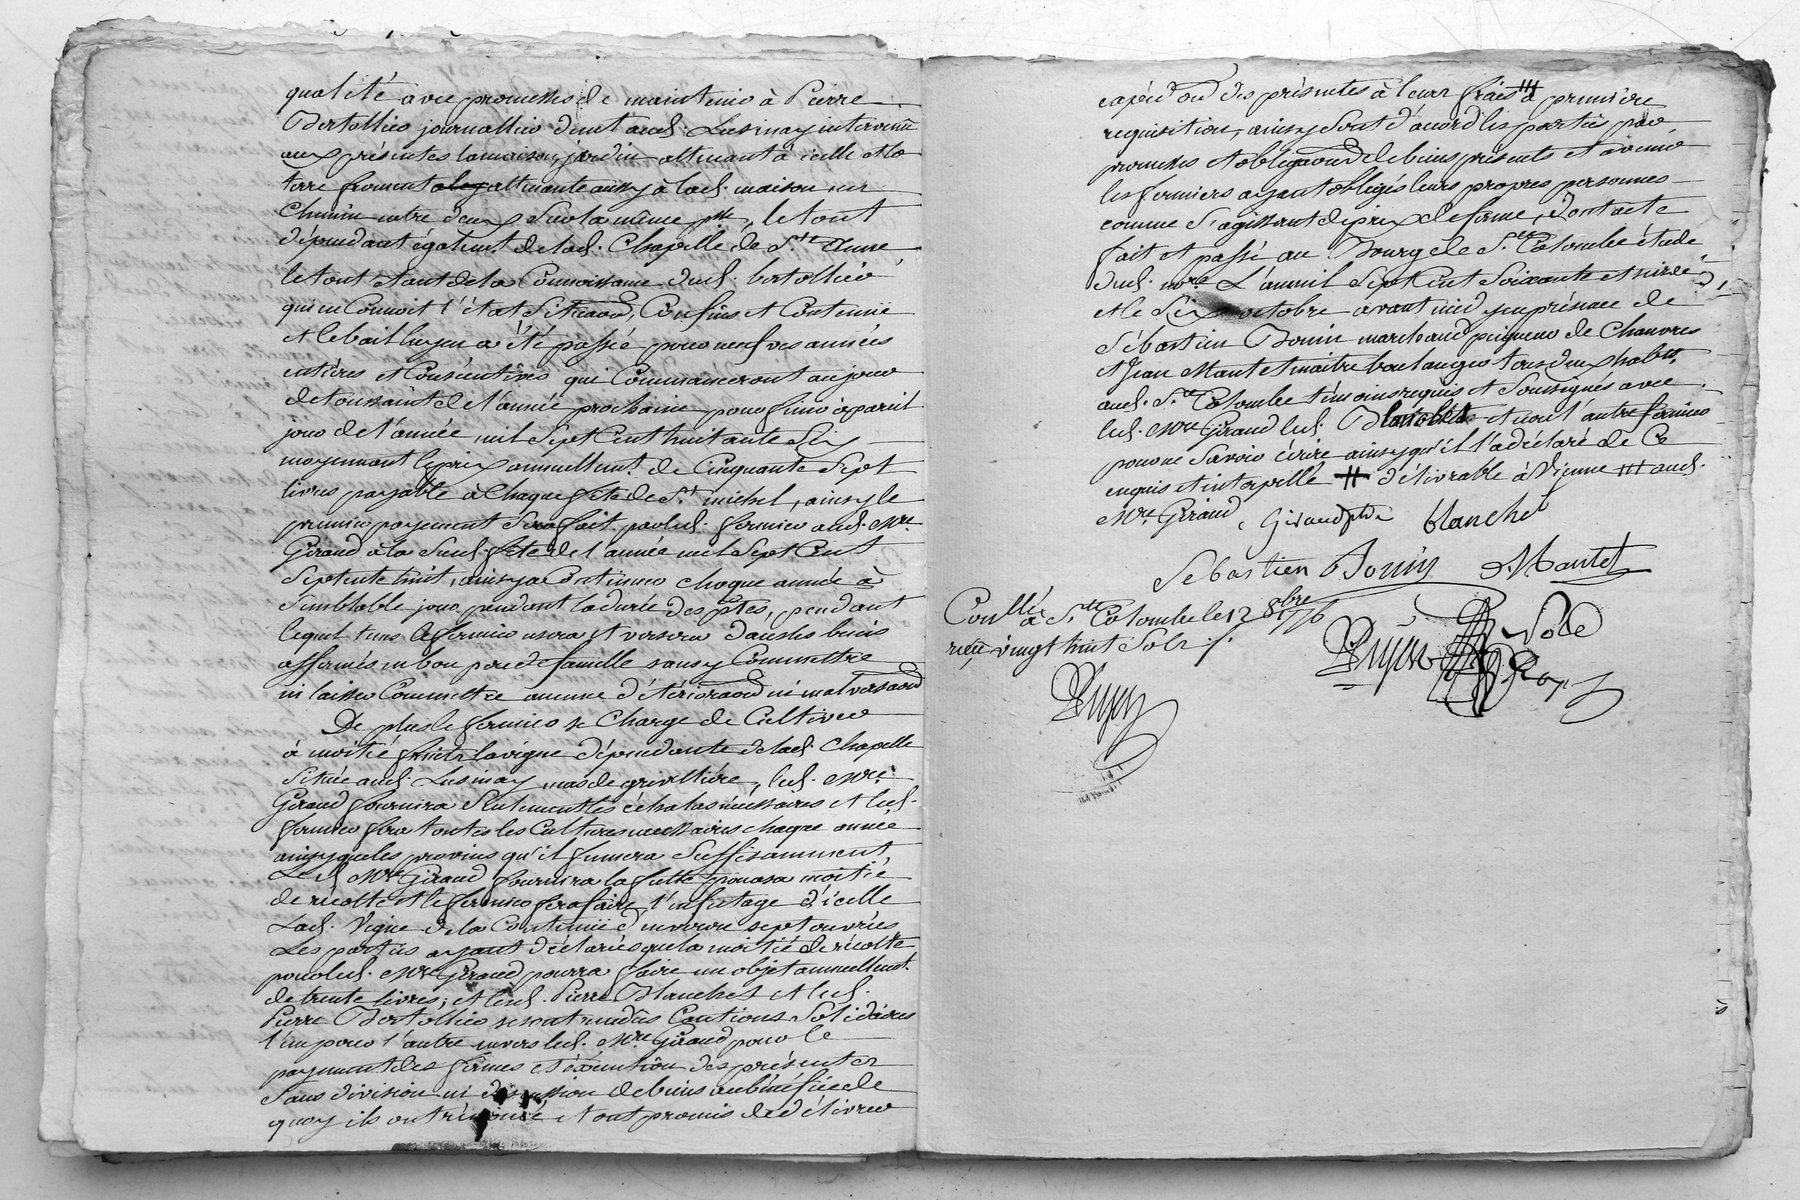 qualité avec promesses de maintenir à Pierre
Bertollier journallier dem.t aud. Lusinay intervenû
aux présentes la maison, jardin attenant à icelle et la
terre froment attenante aussy à lad. maison un
Chemin entre deux sur la même p.sse, le tout
dépendant égalem.t de lad. Chapelle de S.te Anne
le tout étant de la Connoissance dud. bertollier
qui en Connoit l'état Situaôn, Confins et Contenüe
et le bail luy en a été passé pour neuf années
entières et Consécutives qui Commanceront au jour
de toussaint de l'année prochaine pour finir à pareil
jour de l'année mil Sept Cent huitante Six
moyennant le prix annuellem.t de Cinquante Sept
livres payable à Chaque fête de S.t michel, ainsy le
premier payement Sera fait par led. fermier aud. M.re
Giraud à la Sud. fête de l'année mil Sept Cent
Septente huit, ainsy a Continuer chaque année à
Semblable jour pendant la durée des p.ntes, pendant
lequel tems le fermier usera et versera dans les biens
affermés en bon pere de famille sans y Commettre
ni laisser Commettre aucune détérioraôn ni malversaôn
De plus le fermier se Charge de Cultiver
à moitié fruits la vigne dépendante de lad. Chapelle
Située aud. Lusinay, mas de grivolliére, led. M.re
Giraud fournira Seulement les échalas nécessaires et led.
fermier fera toutes les Cultures necessaires chaque année
ainsy que les provins qu'il fumera Suffisamment
Led. M.re Giraud fournira la futte pour sa moitié
de récolte et le fermier fera faire l'enfutage d'icelle
Lad. Vigne de la Contenüe d'environ sept ouvrées
Les parties ayant déclarés que la moitié de récolte
pour led. M.re Giraud pourra faire un objet annuellem.t
de trente livres; et led. Pierre Blanchet et led.
Pierre Bertollier se sont rendûs Cautions Solidaires
l'un pour l'autre envers led. M.re Giraud pour le
payement des fermes et éxécution des présentes
Sans division ni discussion de biens au bénéfice de
quoy ils ont renoncé et ont promis de délivrer
expédôn des présentes à leur frais à premiére
requisition, ainsy Sont d'acord les parties par
promesses et obligaôn de biens présents et avenir
les fermiers ayant obligés leurs propres personnes
comme S'agissant de prix de ferme, Dont acte
fait et passé au Bourg de S.te Colombe étude
dud. no.re L'an mil Sept Cent Soixante et seize
et le Six octobre avant midy en présence de
Sébastien Bonin marchand peigneur de Chanvres
et Jean Mantet maitre boulanger tous deux hab.ts
aud. S.te Colombe témoins requis et Soussignés avec
led. M.re Giraud led. Blanchet et non l'autre fermier
pour ne Savoir écrire ainsy qu'il l'a déclaré de Ce
enquis et interpellé # délivrable à Vienne ### aud.
M.re Giraud
Giraud ptre Blanchet
Sebastien Bonin J Mantet
Con.llé à S.te Colombe le 12 8bre 1776
reçu vingt huit Sols